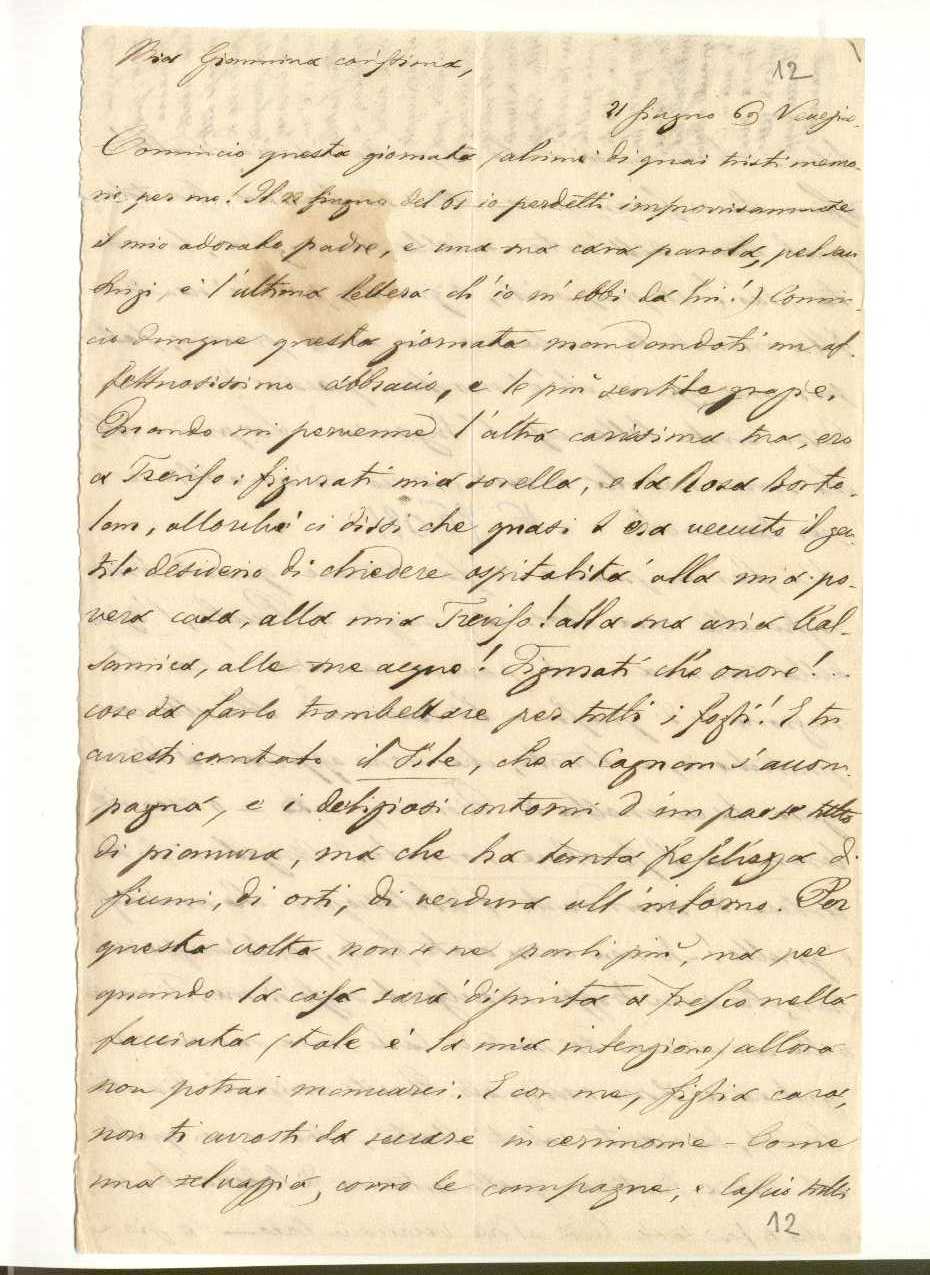 Mia Giannina carissima,
12
21 Giugno 69 Venezia.
Comincio questa giornata (ahimè di quai tristi memo-
rie per me! Il 22 Giugno del 61 io perdetti improvvisamente
il mio adorato padre, e una sua cara parola, pel san
Luigi, è l'ultima lettera ch'io m'ebbi da lui!) Comin-
cio dunque questa giornata mandandoti un af-
fettuosissimo abbraccio, e le più sentite grazie.
Quando mi pervenne l'altra carissima tua, ero
a Treviso: figurati mia sorella, e la Rosa Borto-
lan, allorchè ci dissi che quasi t'era venuto il gen-
tile desiderio di chiedere ospitalità alla mia po-
vera casa, alla mia Treviso! alla sua aria bal-
samica, alle sue acque! Figurati che onore!...
cose da farlo trombettare per tutti i fogli! E tu
avresti cantato il Sile, che a Cagnan s'accom-
pagna, e i deliziosi contorni d'un paese tutto
di pianura, ma che ha tanta freschezza di
fiumi, di orti, di verdura all'intorno. Per
questa volta non se ne parli più, ma per
quando la casa sarà dipinta a fresco nella
facciata (tale è la mia intenzione) allora
non potrai mancarci. E con me, figlia cara,
non ti avresti da seccare in cerimonie - Come
una selvaggia, corro le campagne, e lascio tutti
12